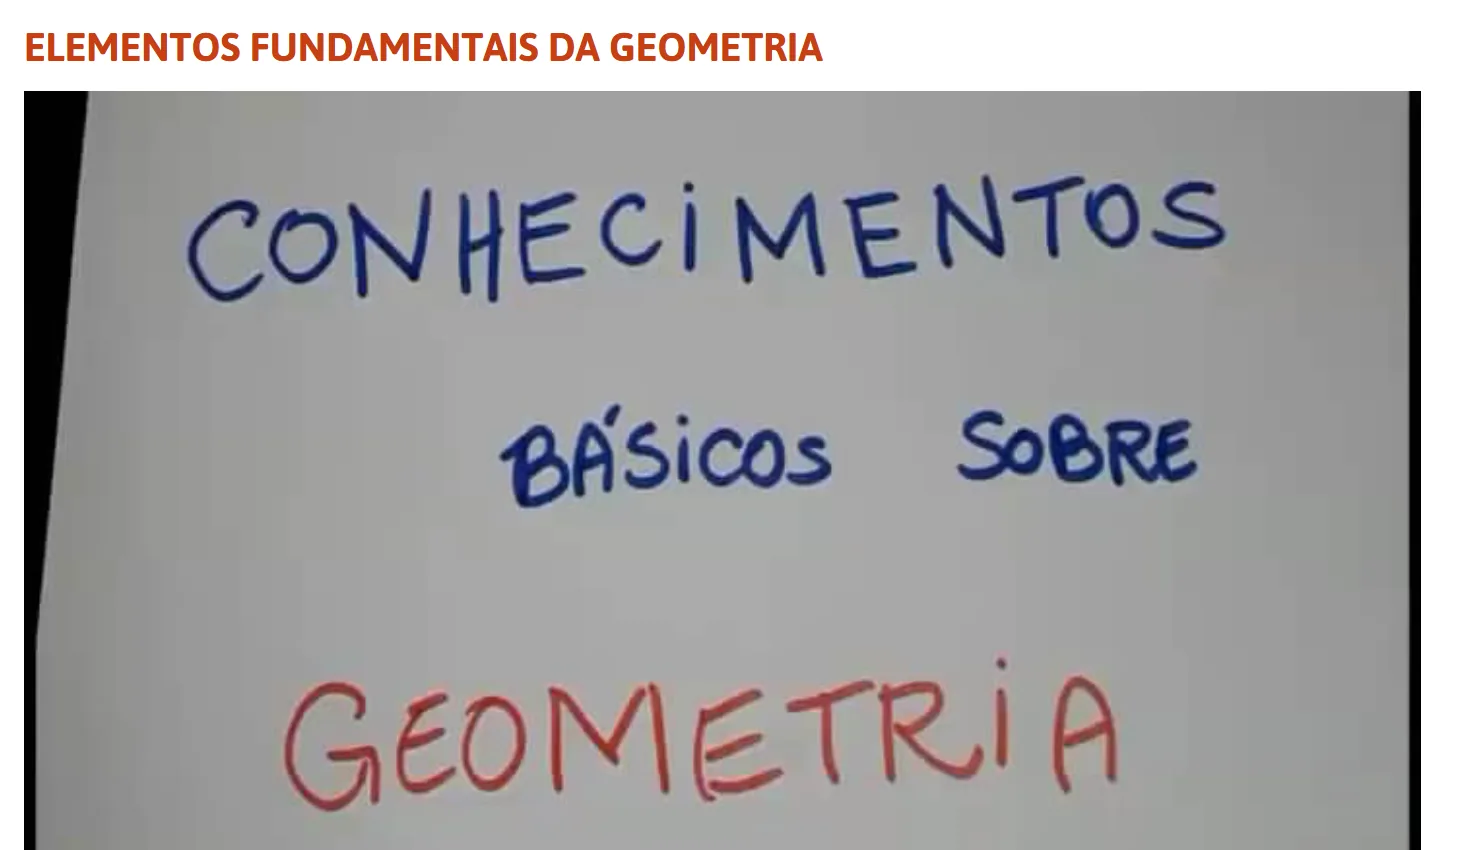 ELEMENTOS FUNDAMENTAIS DA GEOMETRIA
CONHECIMENTOS
BÁSICOS SOBRE
GEOMETRIA